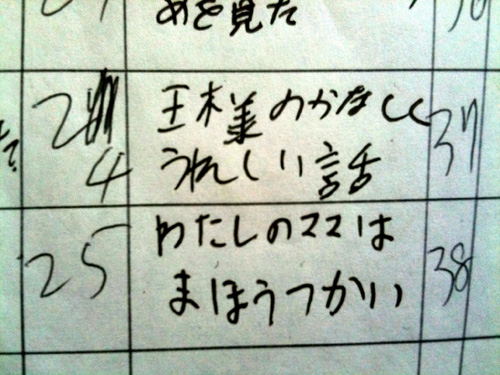 めを見た
24 王様のかなしく 37
うれしい話
25 わたしのママは 38
まほうつかい